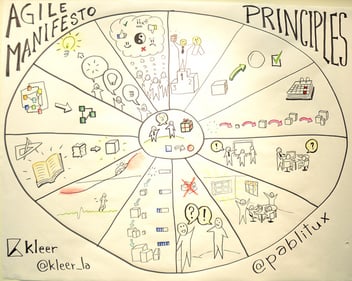 AGILE
MANIFESTO
PRINCIPLES
kleer
@kleer_la
@pablitux